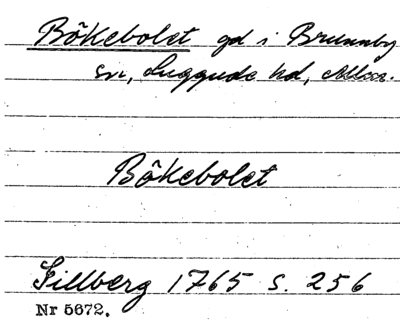 Bökebolet gd i Brunnby
sn, Luggude hd, Mlm.
Bökebolet
Gillberg 1765 s. 256
Nr 5672.